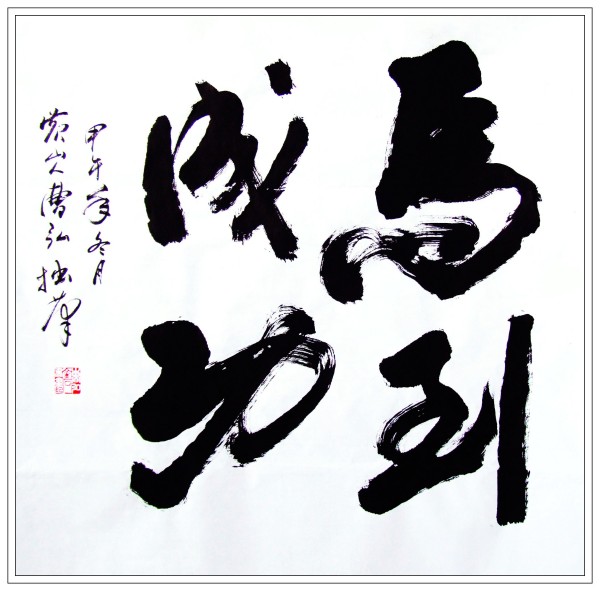 馬到
成功
甲午年冬月
黄山曹弘拙筆